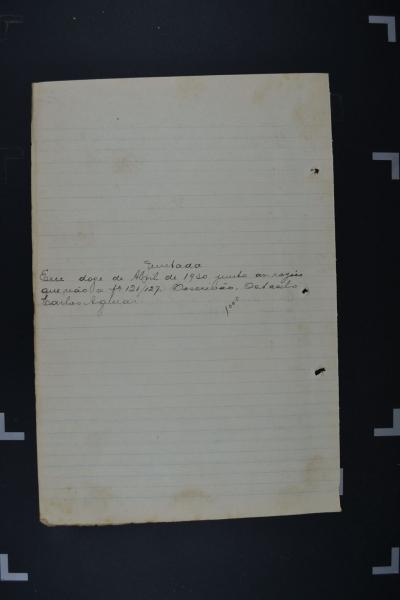 Juntada
Em doze de Abril de 1930 junto as razões
que vão a fs 121/127. O escrivão, Octavio
Carlos Aguiar
1000